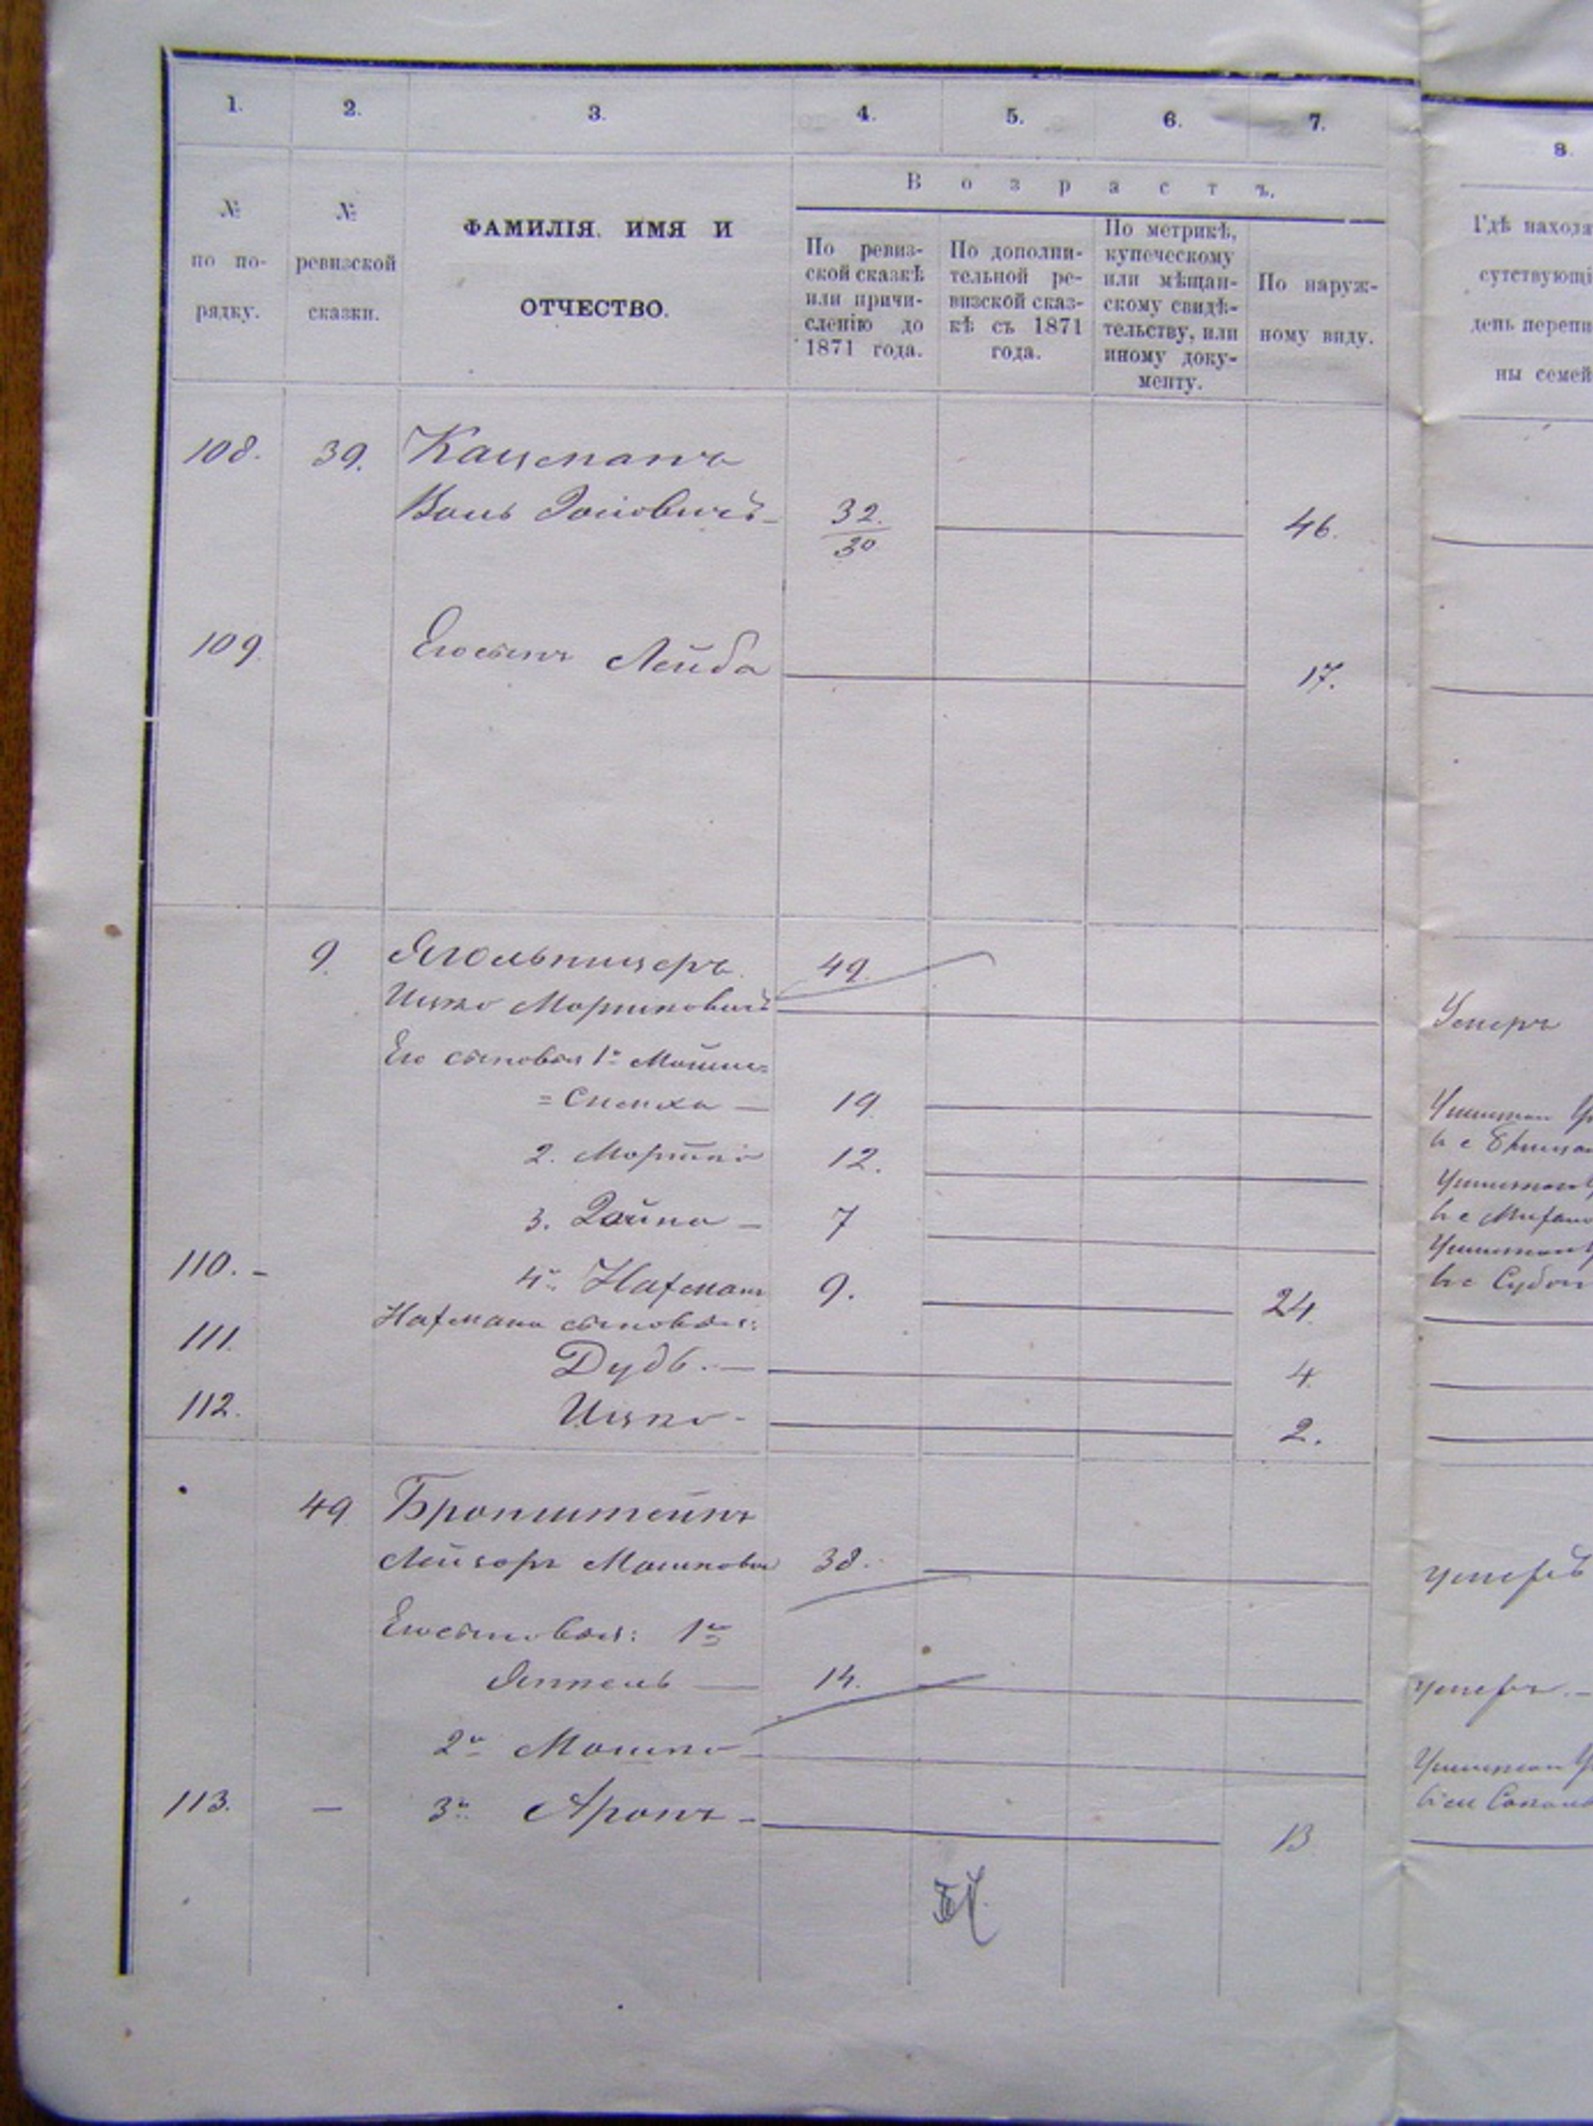 1. 2. 3. 4. 5. 6. 7. 8.
Возрастъ.
№ по порядку.
№ ревизской сказки.
ФАМИЛІЯ. ИМЯ И
ОТЧЕСТВО.
По ревиз-
ской сказкѣ
или причи-
сленію до
1871 года.
По дополни-
тельной ре-
визской сказ-
кѣ съ 1871
года.
По метрикѣ,
купеческому
или мѣщан-
скому свидѣ-
тельству, или
иному доку-
менту.
По наруж-
ному виду.
Гдѣ находя
сутствующі
день перепи
ны семей
108. 39. Кацманъ
Волъ 32. 46.
30
109. Его сынъ Лейба 17.
9. Ягольницеръ 49.
Ицко Моршковичъ Умеръ
Его сыновья 1й
= Симха — 19
2. Моршко 12.
3. 7
110. – 4й Нафманъ 9. 24.
Нафмана сыновья:
111. Дудъ. — 4.
112. Ицко - 2.
49 Бронштейнъ
Лейзоръ Мошкович 38. умеръ
Его сыновья: 1й
Янкель — 14. умеръ. –
2й Мошко
113. — 3й Аронъ – 13